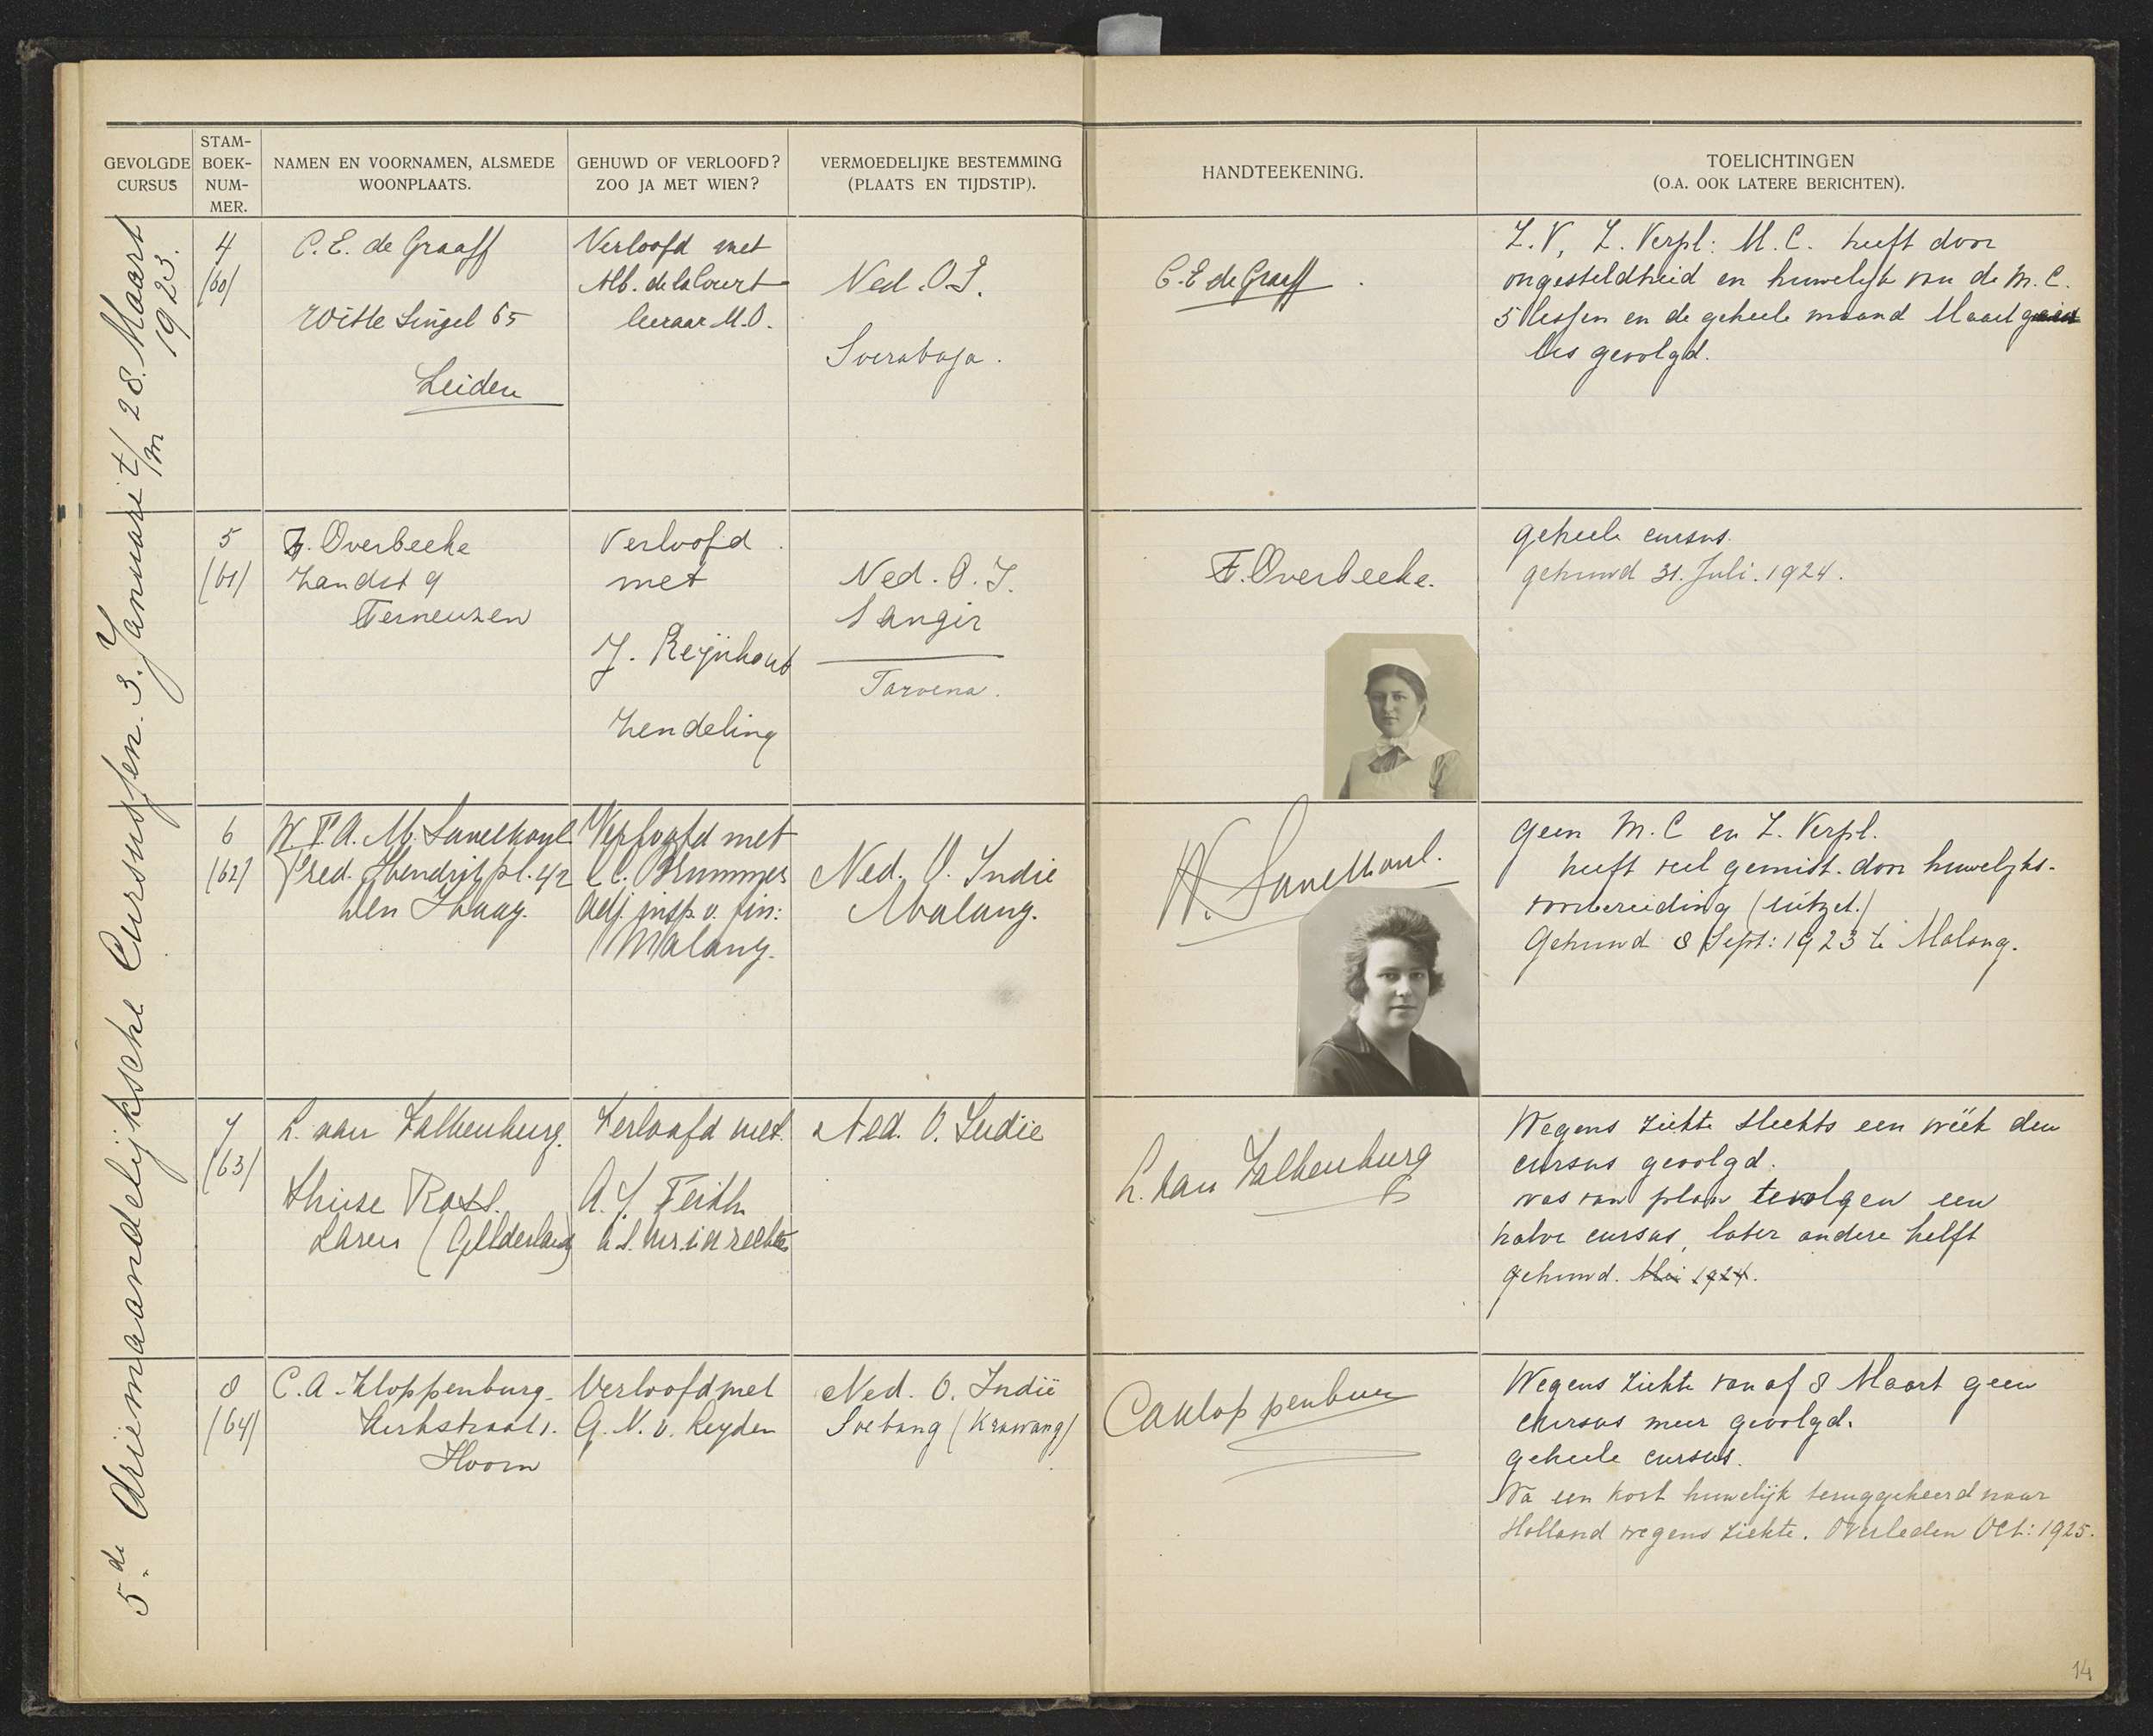 GEVOLGDE
CURSUS
STAM-
BOEK-
NUM-
MER.
NAMEN EN VOORNAMEN, ALSMEDE
WOONPLAATS.
GEHUWD OF VERLOOFD?
ZOO JA MET WIEN?
VERMOEDELIJKE BESTEMMING
(PLAATS EN TIJDSTIP).
HANDTEEKENING.
TOELICHTINGEN
(O.A. OOK LATERE BERICHTEN).
5de driemaandelijksche Cursussen. 3. Januari t/m 28. Maart
1923.
4
(60)
C. E. de Graaff
Witte Singel 65
Leiden
Verloofd met
Alb. de la Court
leeraar M.O.
Ned. O.I.
Soerabaja.
C. E de Graaff
Z. V, Z. Verpl: M. C. heeft door
ongesteldheid en huwelijk van de M. C.
5 lessen en de geheele maand Maart geen
les gevolgd.
5
(61)
F. Overbeeke
Zandst 9
Terneuzen
Verloofd
met
J. Reijnhout
Zendeling
Ned. O. I.
Sangir
Taroena.
F. Overbeeke.
geheele cursus.
gehuwd 31. Juli. 1924.
6
(62)
Fred. Hendrik pl. 42
Den Haag.
Verloofd met
C. C. Brummer
Adj. insp. v. fin:
Malang.
Ned. O. Indie
Malang.
geen M. C en Z. Verpl.
heeft veel gemist. door huwelijks-
voorbereiding (uitzet.)
Gehuwd 8 Sept: 1923 te Malang.
7
(63)
L. van Valkenburg.
Huise Rossl.
Laren (Gelderland)
Verloofd met.
A. J. Feith
Ned. O. Indie
L. van Valkenburg
Wegens ziekte slechts een week den
cursus gevolgd.
was van plan te volgen een
halve cursus, later andere helft
gehuwd. Mei 1924.
8
(64)
C. A. Kloppenburg.
Kerkstraat 1.
Hoorn
Verloofd met
G. N. v. Leyden
Ned. O. Indië
Soebang (Krawang)
CAKloppenburg
Wegens ziekte vanaf 8 Maart geen
cursus meer gevolgd.
geheele cursus.
Na een kort huwelijk teruggekeerd naar
Holland wegens ziekte. Overleden Oct: 1925.
14